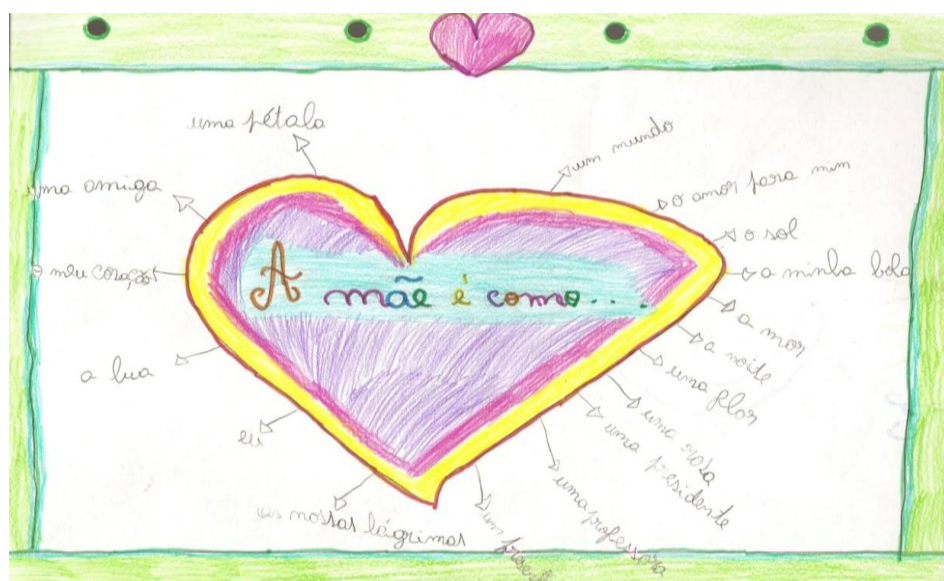 uma pétala
um mundo
o amor para mim
o sol
a minha bola
a mor
a noite
uma flor
uma rosa
uma presidente
uma professora
um
as nossas lágrimas
eu
a lua
o meu coração
uma amiga
A mãe é como...